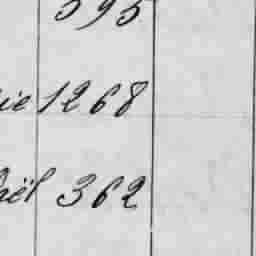 595
ie 1268
aël 362